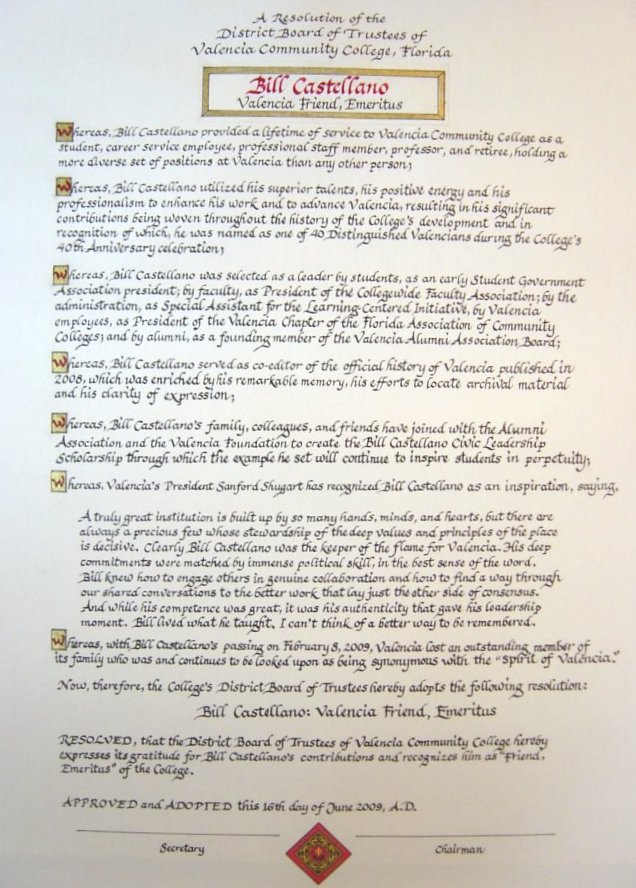 A Resolution of the
District Board of Trustees of
Valencia Community College, Florida
Bill Castellano
Valencia Friend, Emeritus
Whereas, Bill Castellano provided a lifetime of service to Valencia Community College as a
student, career service employee, professional staff member, professor, and retiree, holding a
more diverse set of positions at Valencia than any other person;
Whereas, Bill Castellano utilized his superior talents, his positive energy and his
professionalism to enhance his work and to advance Valencia, resulting in his significant
contributions being woven throughout the history of the College's development and in
recognition of which, he was named as one of 40 Distinguished Valencians during the College's
40th Anniversary celebration;
Whereas, Bill Castellano was selected as a leader by students, as an early Student Government
Association president; by faculty, as President of the Collegewide Faculty Association; by the
administration, as Special Assistant for the Learning-Centered Initiative, by Valencia
employees, as President of the Valencia Chapter of the Florida Association of Community
Colleges; and by alumni, as a founding member of the Valencia Alumni Association Board;
Whereas, Bill Castellano served as co-editor of the official history of Valencia published in
2008, which was enriched by his remarkable memory, his efforts to locate archival material
and his clarity of expression;
Whereas, Bill Castellano's family, colleagues, and friends have joined with the Alumni
Association and the Valencia Foundation to create the Bill Castellano Civic Leadership
Scholarship through which the example he set will continue to inspire students in perpetuity;
Whereas, Valencia's President Sanford Shugart has recognized Bill Castellano as an inspiration, saying,
A truly great institution is built up by so many hands, minds, and hearts, but there are
always a precious few whose stewardship of the deep values and principles of the place
is decisive. Clearly Bill Castellano was the keeper of the flame for Valencia. His deep
commitments were matched by immense political skill, in the best sense of the word.
Bill knew how to engage others in genuine collaboration and how to find a way through
our shared conversations to the better work that lay just the other side of consensus.
And while his competence was great, it was his authenticity that gave his leadership
moment. Bill lived what he taught. I can't think of a better way to be remembered.
Whereas, with Bill Castellano's passing on February 8, 2009, Valencia lost an outstanding member of
its family who was and continues to be looked upon as being synonymous with the "spirit of Valencia."
Now, therefore, the College's District Board of Trustees hereby adopts the following resolution:
Bill Castellano: Valencia Friend, Emeritus
RESOLVED, that the District Board of Trustees of Valencia Community College hereby
expresses its gratitude for Bill Castellano's contributions and recognizes him as "Friend,
Emeritus" of the College.
APPROVED and ADOPTED this 16th day of June 2009, A.D.
Secretary
Chairman